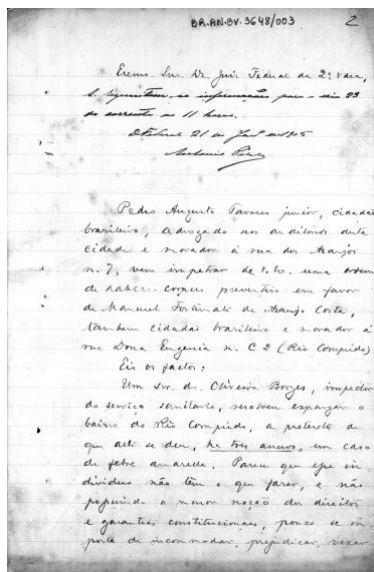 BR.AN.BV.3648/003
2
Exmo. Snr. Dr. Juiz Federal da 2ª Vara,
as informações para o dia 23
do corrente as 11 horas.
21 de 1905
Antonio
Pedro Augusto Tavares junior, cidadão
brasileiro, advogado nos auditorios desta
cidade e morador á rua dos Araujos
n. 7, vem impetrar de V. Ex. uma ordem
de habeas-corpus preventivo em favor
de Manuel Fortunato de Araujo Costa,
tambem cidadão brasileiro e morador á
rua Dona Eugenia n. C 2 (Rio Comprido)
Eis os factos:
Um snr. dr. Oliveira Borges, inspector
do serviço sanitario, resolveu expurgar o
bairro do Rio Comprido, a pretexto de
que alli se deu, ha tres annos, um caso
de febre amarella. Parece que esse in-
dividuo não tem o que fazer, e não
possuindo a menor noção dos direitos
e garantias constitucionaes, pouco se im-
porta de incommodar, prejudicar, vexar